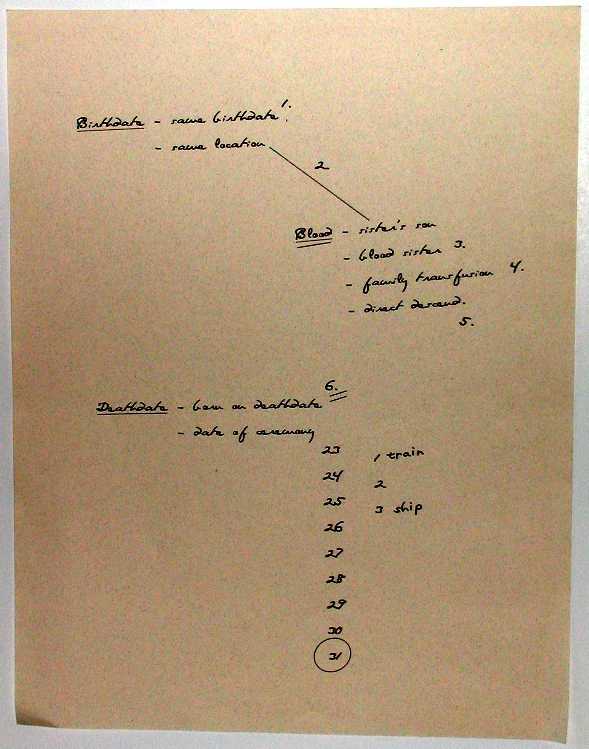 Birthdate - same birthdate 1.
- same location
2
Blood - sister's son
- blood sister 3.
- family transfusion 4.
- direct descend.
5.
6.
Deathdate - born on deathdate
- date of ceremony
23 1 train
24 2
25 3 ship
26
27
28
29
30
31